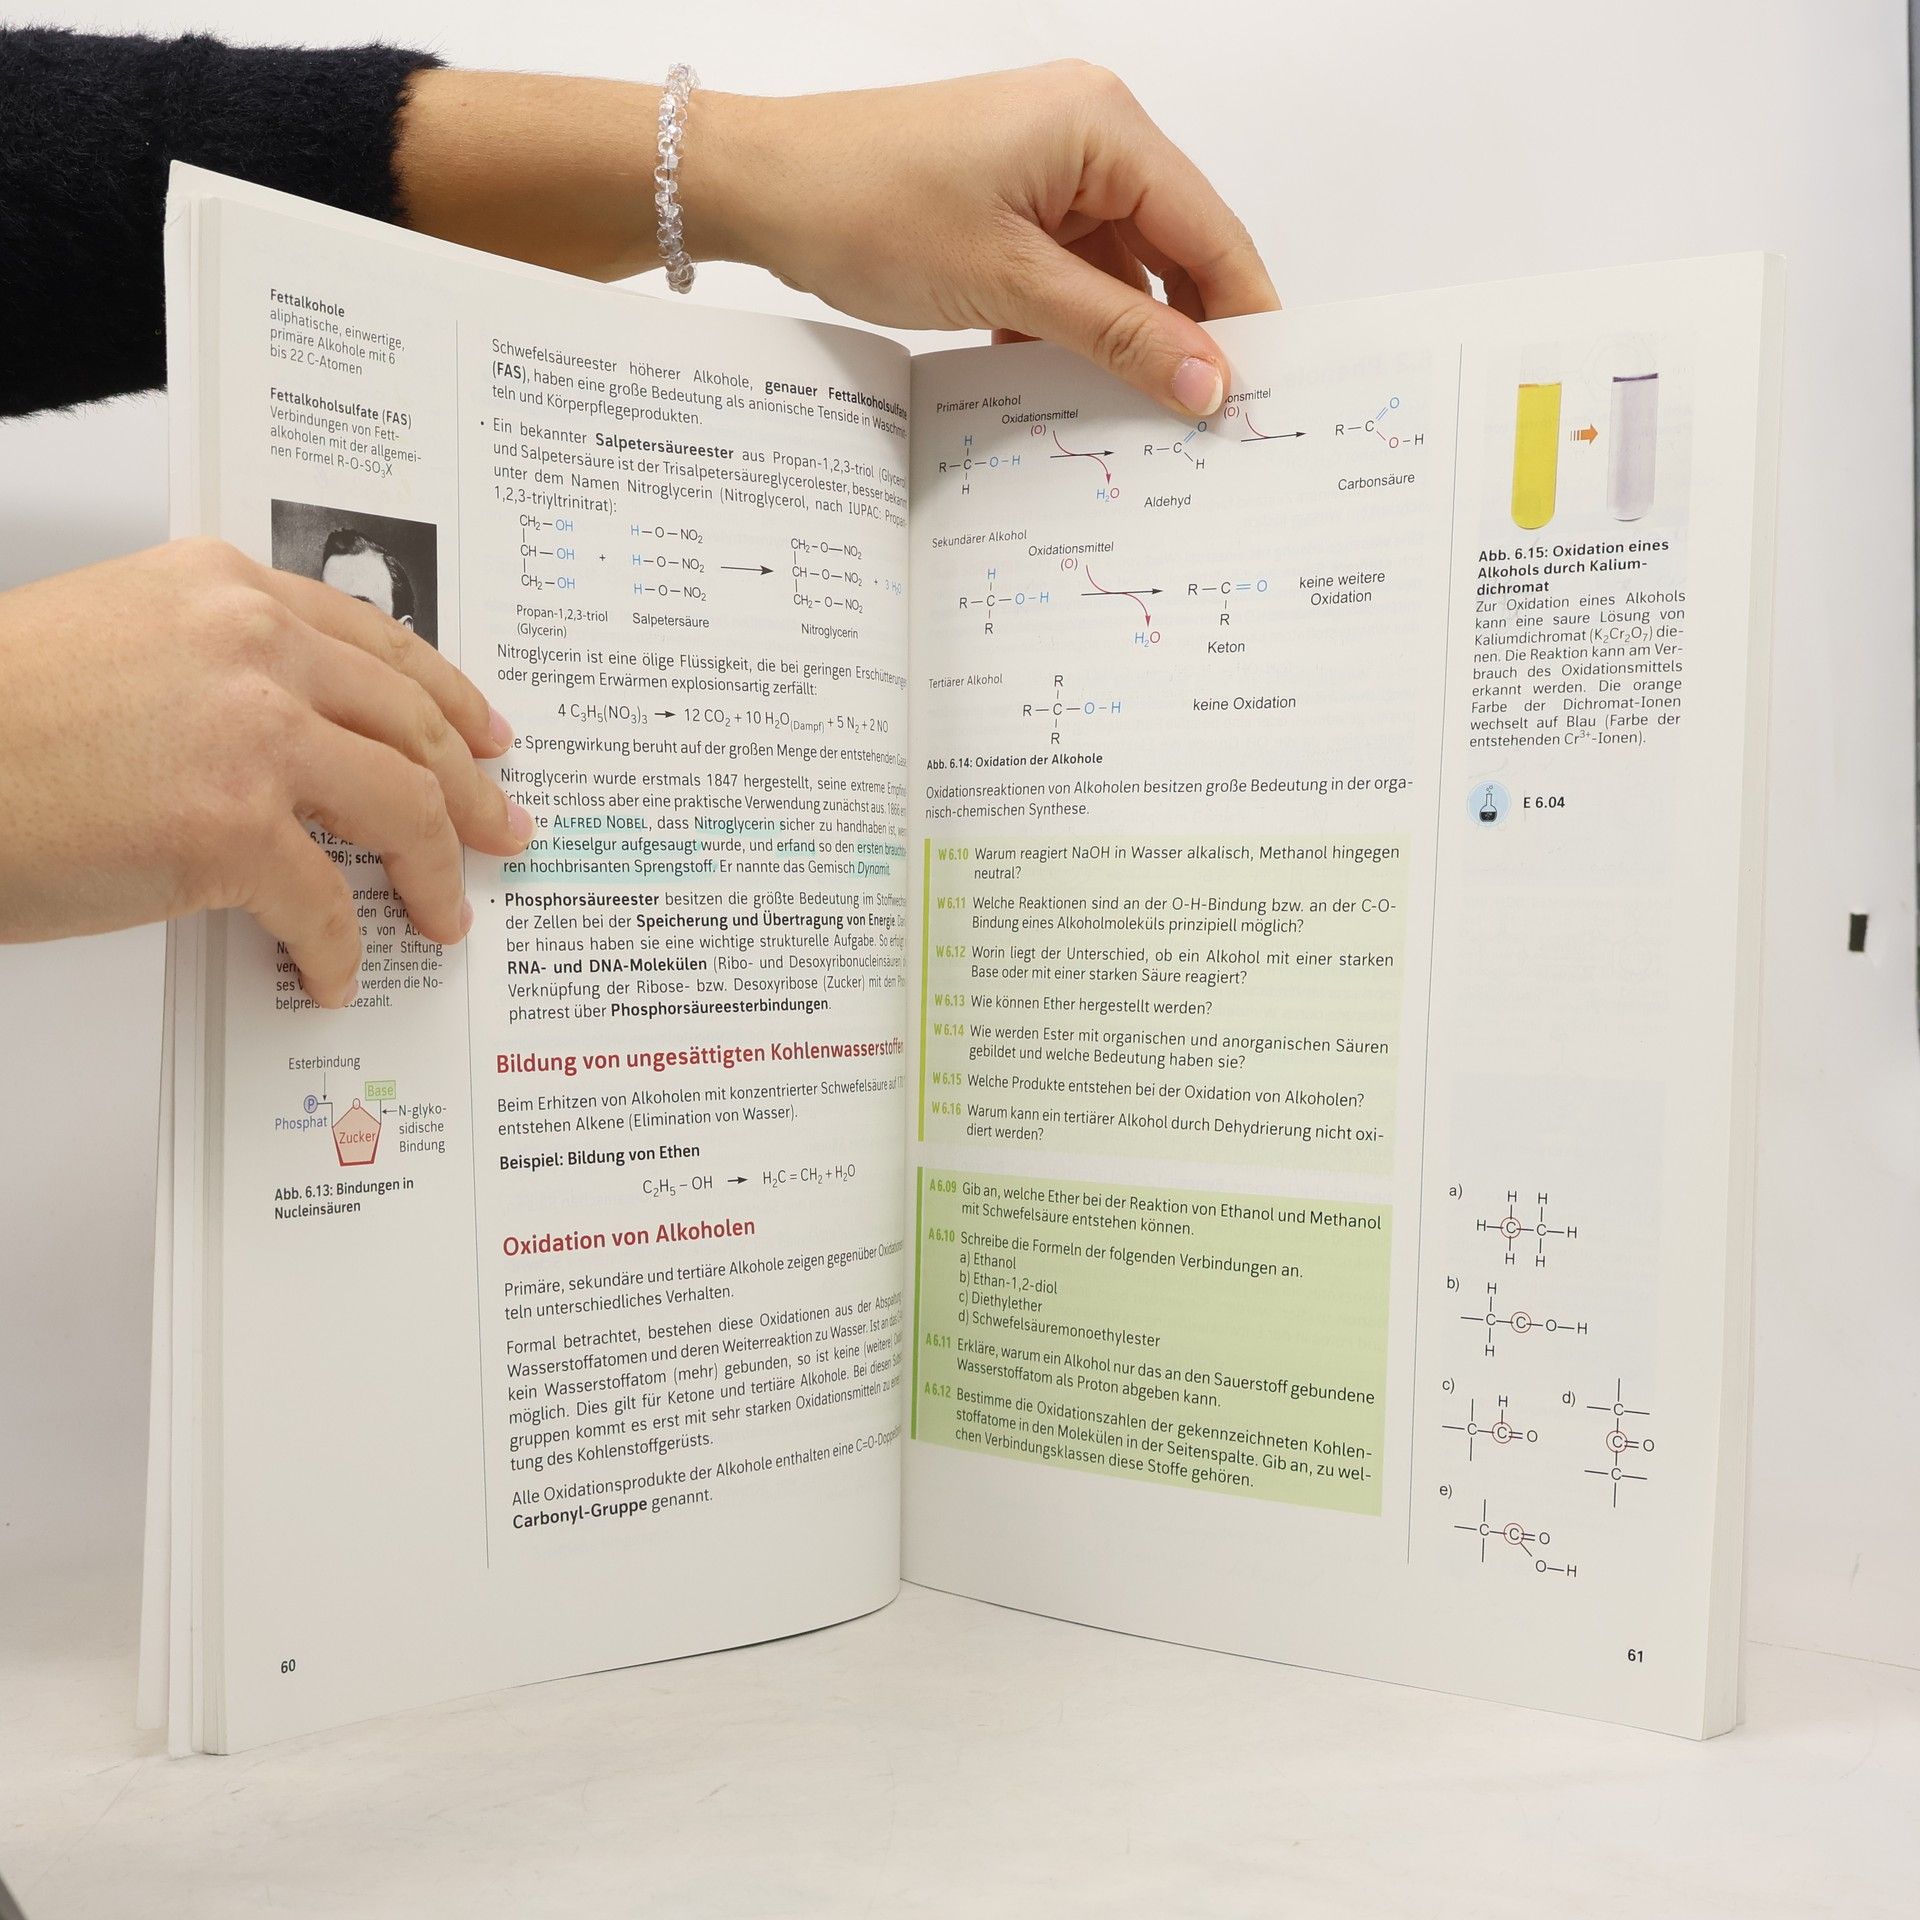 Fettalkohole
aliphatische, einwertige,
primäre Alkohole mit 6
bis 22 C-Atomen
Fettalkoholsulfate (FAS)
Verbindungen von Fett-
alkoholen mit der allgemei-
nen Formel R-O-SO₃X
6.12:
896); schw
andere
den Grun
s von
einer Stiftung
den Zinsen die-
ses werden die No-
belpreis bezahlt.
Esterbindung
Base
P
Phosphat
Zucker
N-glyko-
sidische
Bindung
Abb. 6.13: Bindungen in
Nucleinsäuren
60
Schwefelsäureester höherer Alkohole, genauer Fettalkoholsulfate
(FAS), haben eine große Bedeutung als anionische Tenside in Waschmit-
teln und Körperpflegeprodukten.
• Ein bekannter Salpetersäureester aus Propan-1,2,3-triol (Glycerol
und Salpetersäure ist der Trisalpetersäureglycerolester, besser bekannt
unter dem Namen Nitroglycerin (Nitroglycerol, nach IUPAC: Propan-
1,2,3-triyltrinitrat):
CH₂ — OH H — O — NO₂ CH₂ – O — NO₂
CH — OH + H — O — NO₂ CH – O – NO₂ + 3 H₂O
CH₂ – OH H – O – NO₂ CH₂ – O – NO₂
Propan-1,2,3-triol Salpetersäure Nitroglycerin
(Glycerin)
Nitroglycerin ist eine ölige Flüssigkeit, die bei geringen Erschütterungen
oder geringem Erwärmen explosionsartig zerfällt:
4 C₃H₅(NO₃)₃ → 12 CO₂ + 10 H₂O(Dampf) + 5 N₂ + 2 NO
e Sprengwirkung beruht auf der großen Menge der entstehenden Gase
Nitroglycerin wurde erstmals 1847 hergestellt, seine extreme Empfind
chkeit schloss aber eine praktische Verwendung zunächst aus. 1866
te ALFRED NOBEL, dass Nitroglycerin sicher zu handhaben ist,
von Kieselgur aufgesaugt wurde, und erfand so den ersten brauchba
ren hochbrisanten Sprengstoff. Er nannte das Gemisch Dynamit.
• Phosphorsäureester besitzen die größte Bedeutung im Stoffwechs
der Zellen bei der Speicherung und Übertragung von Energie. Da
ber hinaus haben sie eine wichtige strukturelle Aufgabe. So erfolgt
RNA- und DNA-Molekülen (Ribo- und Desoxyribonucleinsäuren)
Verknüpfung der Ribose- bzw. Desoxyribose (Zucker) mit dem Pho
phatrest über Phosphorsäureesterbindungen.
Bildung von ungesättigten Kohlenwasserstoffen
Beim Erhitzen von Alkoholen mit konzentrierter Schwefelsäure auf 170
entstehen Alkene (Elimination von Wasser).
Beispiel: Bildung von Ethen
C₂H₅ – OH → H₂C = CH₂ + H₂O
Oxidation von Alkoholen
Primäre, sekundäre und tertiäre Alkohole zeigen gegenüber Oxidations
teln unterschiedliches Verhalten.
Formal betrachtet, bestehen diese Oxidationen aus der Abspaltung
Wasserstoffatomen und deren Weiterreaktion zu Wasser. Ist an das
kein Wasserstoffatom (mehr) gebunden, so ist keine (weitere)
möglich. Dies gilt für Ketone und tertiäre Alkohole. Bei diesen
gruppen kommt es erst mit sehr starken Oxidationsmitteln zu
tung des Kohlenstoffgerüsts.
Alle Oxidationsprodukte der Alkohole enthalten eine C=O-Doppel
Carbonyl-Gruppe genannt.
Primärer Alkohol
Oxidationsmittel onsmittel
(O) (O)
H O O
R — C — O – H R – C R – C
H H O – H
H₂O
Aldehyd Carbonsäure
Sekundärer Alkohol
Oxidationsmittel
(O)
H
R — C — O – H R – C = O keine weitere
R R Oxidation
H₂O
Keton
Tertiärer Alkohol
R
R — C — O – H keine Oxidation
R
Abb. 6.14: Oxidation der Alkohole
Oxidationsreaktionen von Alkoholen besitzen große Bedeutung in der orga-
nisch-chemischen Synthese.
W 6.10 Warum reagiert NaOH in Wasser alkalisch, Methanol hingegen
neutral?
W 6.11 Welche Reaktionen sind an der O-H-Bindung bzw. an der C-O-
Bindung eines Alkoholmoleküls prinzipiell möglich?
W 6.12 Worin liegt der Unterschied, ob ein Alkohol mit einer starken
Base oder mit einer starken Säure reagiert?
W 6.13 Wie können Ether hergestellt werden?
W 6.14 Wie werden Ester mit organischen und anorganischen Säuren
gebildet und welche Bedeutung haben sie?
W 6.15 Welche Produkte entstehen bei der Oxidation von Alkoholen?
W 6.16 Warum kann ein tertiärer Alkohol durch Dehydrierung nicht oxi-
diert werden?
A 6.09 Gib an, welche Ether bei der Reaktion von Ethanol und Methanol
mit Schwefelsäure entstehen können.
A 6.10 Schreibe die Formeln der folgenden Verbindungen an.
a) Ethanol
b) Ethan-1,2-diol
c) Diethylether
d) Schwefelsäuremonoethylester
A 6.11 Erkläre, warum ein Alkohol nur das an den Sauerstoff gebundene
Wasserstoffatom als Proton abgeben kann.
A 6.12 Bestimme die Oxidationszahlen der gekennzeichneten Kohlen-
stoffatome in den Molekülen in der Seitenspalte. Gib an, zu wel-
chen Verbindungsklassen diese Stoffe gehören.
Abb. 6.15: Oxidation eines
Alkohols durch Kalium-
dichromat
Zur Oxidation eines Alkohols
kann eine saure Lösung von
Kaliumdichromat (K₂Cr₂O₇) die-
nen. Die Reaktion kann am Ver-
brauch des Oxidationsmittels
erkannt werden. Die orange
Farbe der Dichromat-Ionen
wechselt auf Blau (Farbe der
entstehenden Cr³⁺-Ionen).
E 6.04
a)
H H
H—C—C—H
H H
b)
H
—C—C—O—H
H
c)
H
—C—C=O
d)
—C—
C=O
—C—
e)
—C—C=O
O—H
61